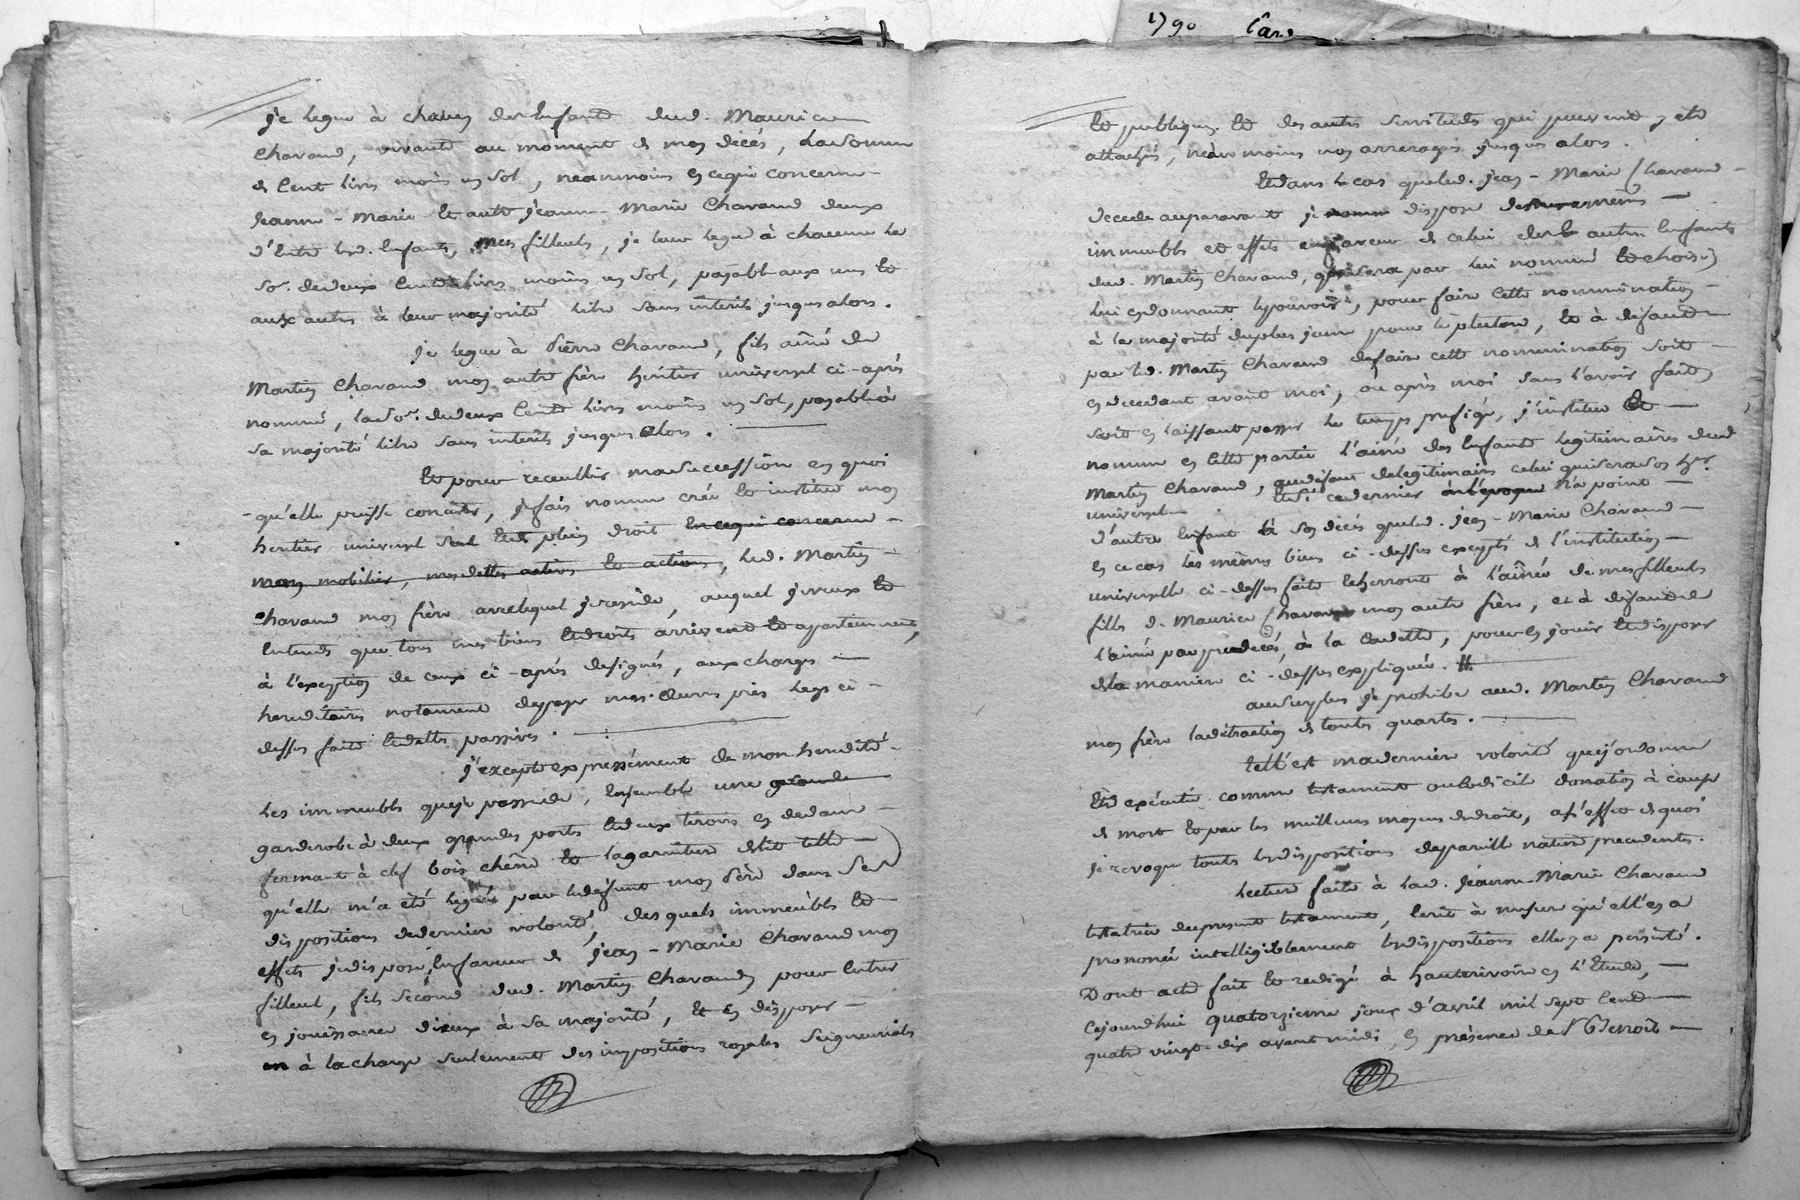 1790 Card
je legue à chacun des enfants dud. Maurice
Chavand, vivants au moment de mon décès, la somme
de cent livres moins un sol, neanmoins en ce qui concerne
Jeanne-Marie et autre Jeanne-Marie Chavand deux
d'entre lesd. enfants, mes filleuls, je leur legue à chacune la
so.e de deux cents livres moins un sol, payable aux uns et
aux autres à leur majorité libre sans interets jusques alors.
je legue à Pierre Chavand, fils ainé de
Martin Chavand mon autre frère heritier universel ci-après
nommé, la so.e de deux cents livres moins un sol, payable à
sa majorité libre sans interets jusques alors.
Et pour receuillir ma succession en quoi
qu'elle puisse consister, je fais nomme crée et institue mon
heritier universel seul et de plein droit en ce qui concerne
mon mobilier, mes dettes actives et actions, led. Martin
Chavand mon frère avec lequel je reside, auquel je veux et
entends que tous mes biens et droits arrivent et appartiennent,
à l'exception de ceux ci-après designés, aux charges
hereditaires notament de payer mes œuvres pies legs ci-
dessus faits et dettes passives.
j'excepte expressément de mon heredité
les immeubles que je possede, ensemble une grande
garderobe à deux grandes portes et deux tiroirs en dedans
fermant à clef bois chêne et la garniture de lit telle
qu'elle m'a été leguée par le defunt mon père dans ses
dispositions de derniere volonté, des quels immeubles et
effets je dispose en faveur de Jean-Marie Chavand mon
filleul, fils second dud. Martin Chavand pour entrer
en jouissance d'iceux à sa majorité, et en disposer
en à la charge seulement des impositions royales seigneuriales
et publiques et des autres servitudes qui peuvent y etre
attachés, neanmoins nos arrerages jusques alors.
Et dans le cas que led. Jean-Marie Chavand
decede auparavant je nomme dispose des memes
immeubles et effets en faveur de celui des autres enfants
dud. Martin Chavand, qui sera par lui nommé et choisi
lui en donnant le pouvoir, pour faire cette nommination
à la majorité du plus jeune pour le plutard, et à defaut
par led. Martin Chavand de faire cette nommination soit
en decedant avant moi, ou après moi sans l'avoir faite
soit en laissant passer le temps prefigé, j'institue et
nomme en cette partie l'ainé des enfants legitimaires dud
Martin Chavand, que defaut de legitimaires celui qui sera son h.er
universel et si ce dernier à l'epoque n'a point
d'autre enfant à son décès que led. Jean-Marie Chavand
en ce cas les mêmes biens ci-dessus exceptés de l'institution
universelle ci-dessus faite echerront à l'aînée de mes filleuls
fills de Maurice Chavand mon autre frère, et à defaut de
l'ainée par predecès, à la cadette, pour en jouir et disposer
de la maniere ci-dessus expliquée. #
au surplus je prohibe aud. Martin Chavand
mon frère la détraction de toutes quartes.
tell'est ma derniere volonté que j'ordonne
etre exécutée comme testament ou codicil donation à cause
de mort et par les meilleurs moyens de droit, à l'effet de quoi
je revoque toutes les dispositions de pareille nature precedentes.
lecture faite à lad. Jeanne-Marie Chavand
testatrice du present testament, ecrit à mesure qu'ell'en a
prononcé intelligiblement les dispositions elle y a persisté.
Dont acte fait et redigé à hauterivoire en l'etude,
cejourdhui quatorzieme jour d'avril mil sept cent
quatre vingt-dix avant midi, en présence de S.r Benoit